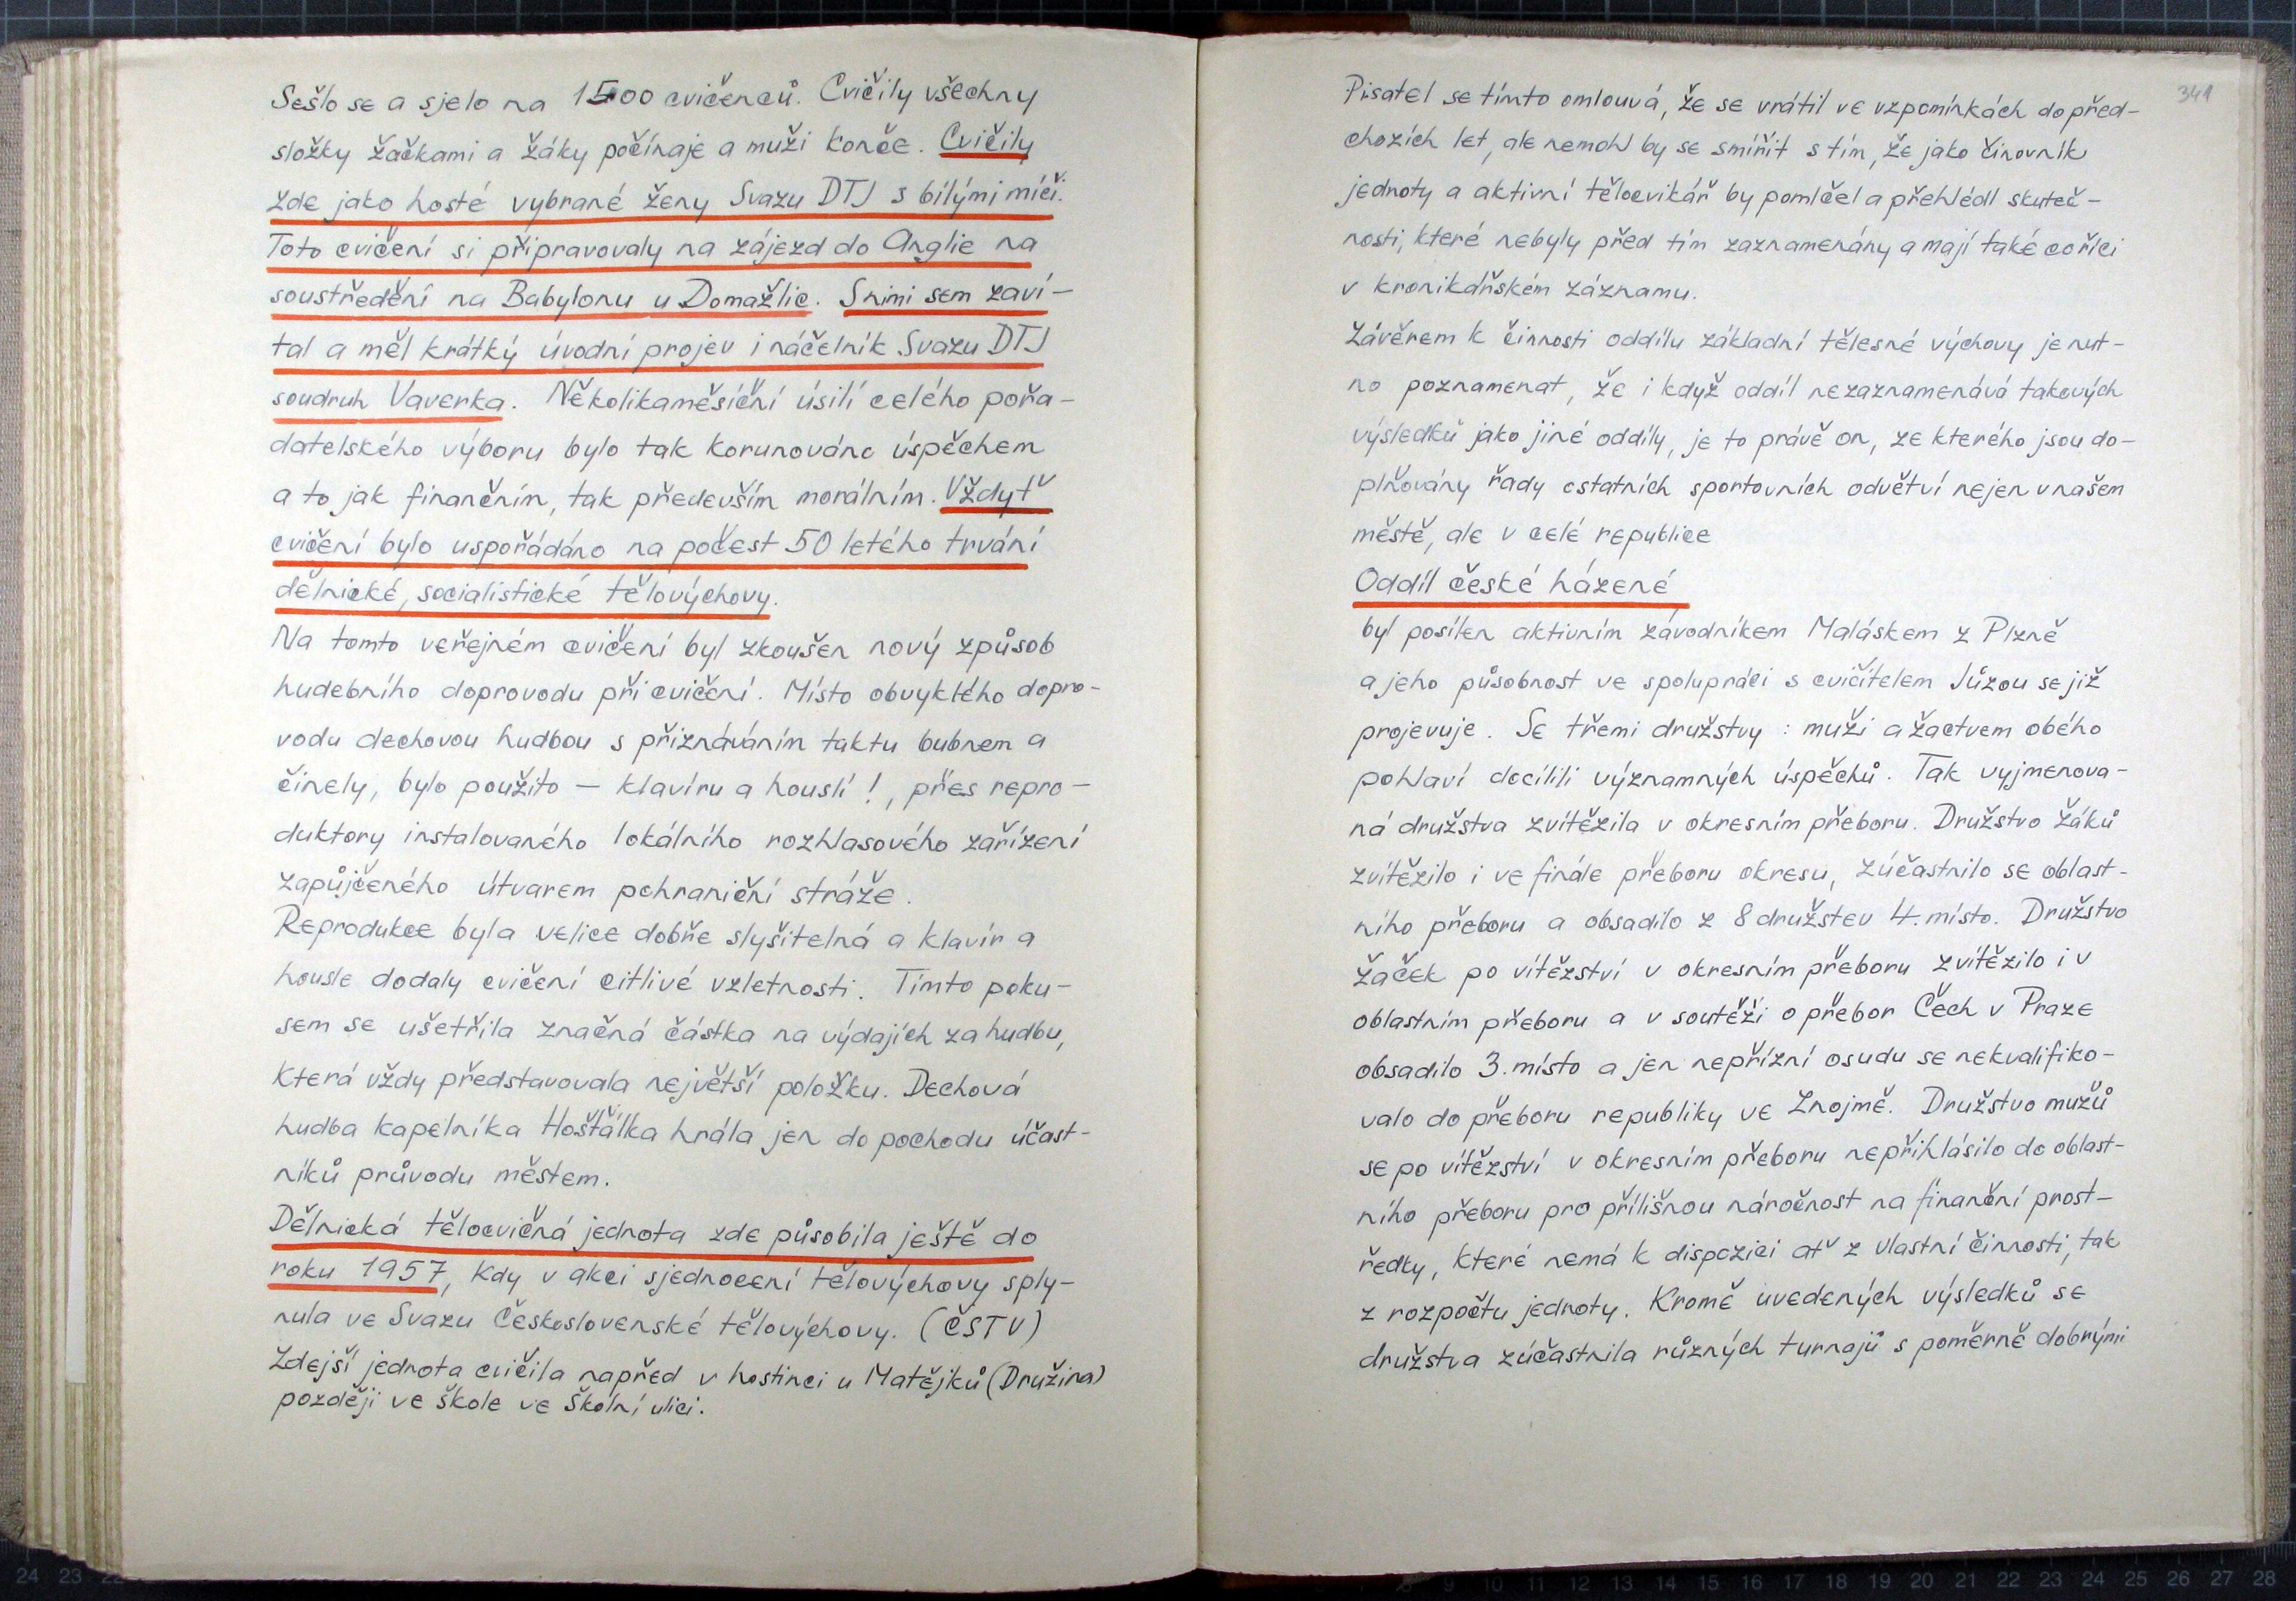 Sešlo se a sjelo na 1500 cvičenců. Cvičily všechny
složky žačkami a žáky počínaje a muži konče. Cvičily
zde jako hosté vybrané ženy Svazu DTJ s bílými míči.
Toto cvičení si připravovaly na zájezd do Anglie na
soustředění na Babylonu u Domažlic. S nimi sem zaví-
tal a měl krátký úvodní projev i náčelník Svazu DTJ
soudruh Vaverka. Několikaměsíční úsilí celého pořa-
datelského výboru bylo tak korunováno úspěchem
a to jak finančním, tak především morálním. Vždyť
cvičení bylo uspořádáno na počest 50 letého trvání
dělnické, socialistické tělovýchovy.
Na tomto veřejném cvičení byl zkoušen nový způsob
hudebního doprovodu při cvičení. Místo obvyklého dopro-
vodu dechovou hudbou s přiznáváním taktu bubnem a
činely, bylo použito — klavíru a houslí!, přes repro-
duktory instalovaného lokálního rozhlasového zařízení
zapůjčeného útvarem pohraniční stráže.
Reprodukce byla velice dobře slyšitelná a klavír a
housle dodaly cvičení citlivé vzletnosti. Tímto poku-
sem se ušetřila značná částka na výdajích za hudbu,
která vždy představovala největší položku. Dechová
hudba kapelníka Hošťálka hrála jen do pochodu účast-
níků průvodu městem.
Dělnická tělocvičná jednota zde působila ještě do
roku 1957, kdy v akci sjednocení tělovýchovy sply-
nula ve Svazu Československé tělovýchovy. (ČSTV)
Zdejší jednota cvičila napřed v hostinci u Matějků (Družina)
později ve škole ve Školní ulici.
341
Pisatel se tímto omlouvá, že se vrátil ve vzpomínkách do před-
chozích let, ale nemohl by se smířit s tím, že jako činovník
jednoty a aktivní tělocvikář by pomlčel a přehlédl skuteč-
nosti, které nebyly před tím zaznamenány a mají také co říci
v kronikářském záznamu.
Závěrem k činnosti oddílu základní tělesné výchovy je nut-
no poznamenat, že i když oddíl nezaznamenává takových
výsledků jako jiné oddíly, je to právě on, ze kterého jsou do-
plňovány řady ostatních sportovních odvětví nejen v našem
městě, ale v celé republice
Oddíl české házené
byl posílen aktivním závodníkem Maláskem z Plzně
a jeho působnost ve spolupráci s cvičitelem Jůzou se již
projevuje. Se třemi družstvy: muži a žactvem obého
pohlaví docílili významných úspěchů. Tak vyjmenova-
ná družstva zvítězila v okresním přeboru. Družstvo žáků
zvítězilo i ve finále přeboru okresu, zúčastnilo se oblast-
ního přeboru a obsadilo z 8 družstev 4. místo. Družstvo
žaček po vítězství v okresním přeboru zvítězilo i v
oblastním přeboru a v soutěži o přebor Čech v Praze
obsadilo 3. místo a jen nepřízní osudu se nekvalifiko-
valo do přeboru republiky ve Znojmě. Družstvo mužů
se po vítězství v okresním přeboru nepřihlásilo do oblast-
ního přeboru pro přílišnou náročnost na finanční prost-
ředky, které nemá k dispozici ať z vlastní činnosti, tak
z rozpočtu jednoty. Kromě uvedených výsledků se
družstva zúčastnila různých turnajů s poměrně dobrými
24 23 22
8 9 10 11 12 13 14 15 16 17 18 19 20 21 22 23 24 25 26 27 28